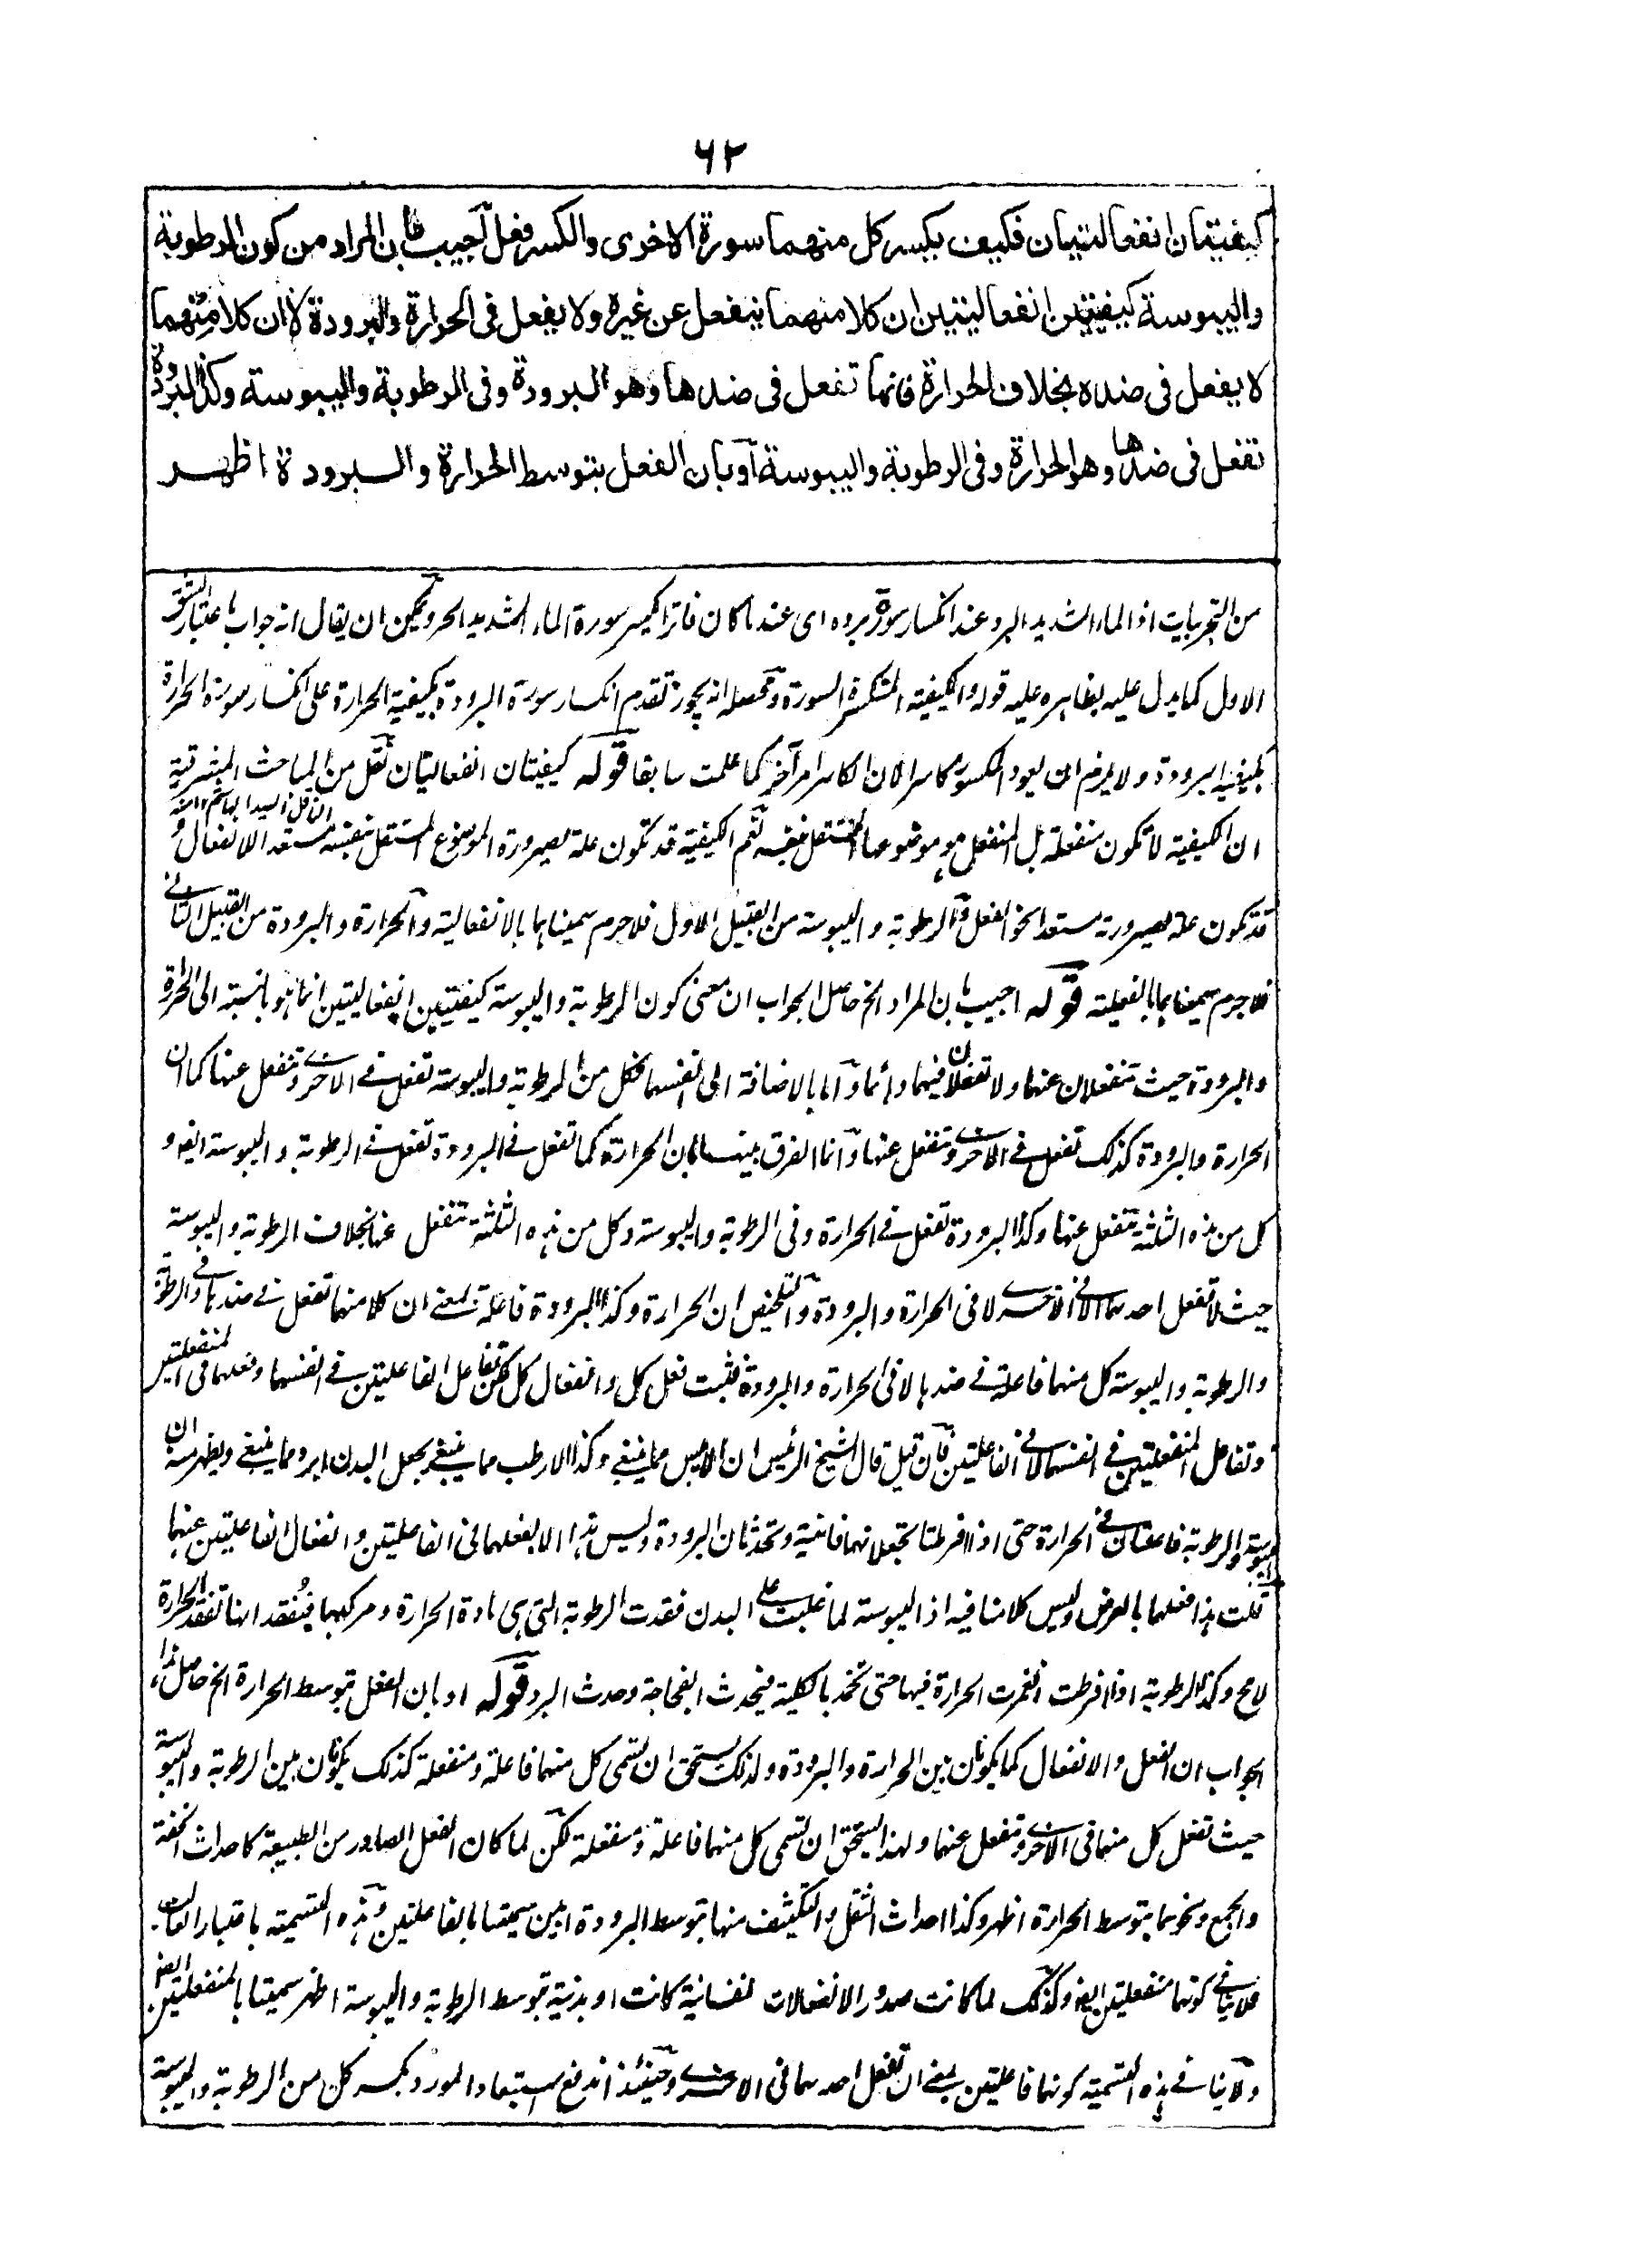 ٦٢
كيفيتان انفعاليتان فكيف يكسر كل منهما سورة الاخرى والكسر فعل آجيب بان المراد من كون الرطوبة
واليبوسة كيفيتين انفعاليتين ان كلا منهما ينفعل عن غيره ولا يفعل فى الحرارة والبرودة لا ان كلا منهما
لا يفعل فى ضده بخلاف الحرارة فانها تفعل فى ضدها وهو البرودة وفى الرطوبة واليبوسة وكذا البرودة
تفعل فى ضدها وهو الحرارة وفى الرطوبة واليبوسة آو بان الفعل بتوسط الحرارة والبرودة اظهر
من التجربيات اذ الماء الشديد البرد عند انكسار سورة برده اى عند ما كان فاترا يكسر سورة الماء الشديد الحر ويمكن ان يقال انه جواب باعتبار الشق
الاول كما يدل عليه بظاهره عليه قوله والكيفية المنكسرة السورة ومحصله انه يجوز تقدم انكسار سورة البرودة بكيفية الحرارة على انكسار سورة الحرارة
بكيفية البرودة ولا يلزم ان يعود المكسور كاسرا لان الكاسر امر آخر كما علمت سابقا قوله كيفيتان انفعاليتان نقل من المباحث المشرقية
ان الكيفية لا تكون منفعلة بل المنفعل هو موضوعها المستقل بنفسه نعم الكيفية قد تكون علة لصيرورة الموضوع المستقل بنفسه مستعد الانفعال و
قد تكون علة لصيرورته مستعدا نحو الفعل والرطوبة واليبوسة من القبيل الاول فلا جرم سميناهما بالانفعالية والحرارة والبرودة من القبيل الثانى
فلا جرم سميناهما بالفعلية قوله اجيب بان المراد الخ حاصل الجواب ان معنى كون الرطوبة واليبوسة كيفيتين انفعاليتين انما هو بالنسبة الى الحرارة
والبرودة حيث تنفعلان عنهما ولا تفعلان فيهما دائما واما بالاضافة الى انفسهما فكل من الرطوبة واليبوسة تفعل فى الاخرى وتنفعل عنها كما ان
الحرارة والبرودة كذلك تفعل فى الاخرى وتنفعل عنها وانما الفرق بينهما بان الحرارة كما تفعل فى البرودة تفعل فى الرطوبة واليبوسة ايضا و
كل من هذه الثلثة تنفعل عنها وكذا البرودة تفعل فى الحرارة وفى الرطوبة واليبوسة وكل من هذه الثلثة تنفعل عنها بخلاف الرطوبة واليبوسة
حيث لا تفعل احدهما الا فى الاخرى لا فى الحرارة والبرودة والتلخيص ان الحرارة وكذا البرودة فاعلة بمعنى ان كلا منهما تفعل فى ضدها وفى
والرطوبة واليبوسة كل منهما فاعلة فى ضدها لا فى الحرارة والبرودة فثبت فعل كل وانفعال كل لكن تفاعل الفاعليتين فى انفسهما وفعلهما فى المنفعلتين
وتفاعل المنفعلتين فى انفسهما لا فى الفاعلتين فان قيل قال الشيخ الرئيس ان الايبس مما ينبغى وكذا الارطب مما ينبغى يجعل البدن ابرد مما ينبغى ويظهر منه ان
اليبوسة والرطوبة فاعلتان فى الحرارة حتى اذا افرطتا تجعلانها فانية وتحدثان البرودة وليس هذا الا بفعلهما فى الفاعليتين وانفعال الفاعليتين عنهما
قلت هذا فعلهما بالعرض وليس كلامنا فيه اذ اليبوسة لما غلبت على البدن فقدت الرطوبة التى هى مادة الحرارة ومركبها فبفقدانها تفقد الحرارة
لا مح وكذا الرطوبة اذا افرطت انغمرت الحرارة فيها حتى تخمد بالكلية فيحدث الفجاجة وحدث البرد قوله او بان الفعل بتوسط الحرارة الخ حاصل هذا
الجواب ان الفعل والانفعال كما يكونان بين الحرارة والبرودة ولذلك يستحق ان يسمى كل منهما فاعلة ومنفعلة كذلك يكونان بين الرطوبة واليبوسة
حيث تفعل كل منهما فى الاخرى وتنفعل عنها ولهذا يستحق ان تسمى كل منهما فاعلة ومنفعلة لكن لما كان الفعل الصادر من الطبيعة كاحداث الخفة
والجمع ونحوهما بتوسط الحرارة اظهر وكذا احداث الثقل والتكثيف منها بتوسط البرودة ابين سميتا بالفاعلتين وهذه التسمية باعتبار الغالب
فلا ينافى كونهما منفعلتين ايضا وكذلك لما كانت صدور الانفعالات نفسانية كانت او بدنية بتوسط الرطوبة واليبوسة اظهر سميتا بالمنفعلتين ايضا
ولا ينافى هذه التسمية كونهما فاعليتين بمعنى ان تفعل احدهما فى الاخرى وحينئذ اندفع استبعاد المورد بكسر كل من الرطوبة واليبوسة